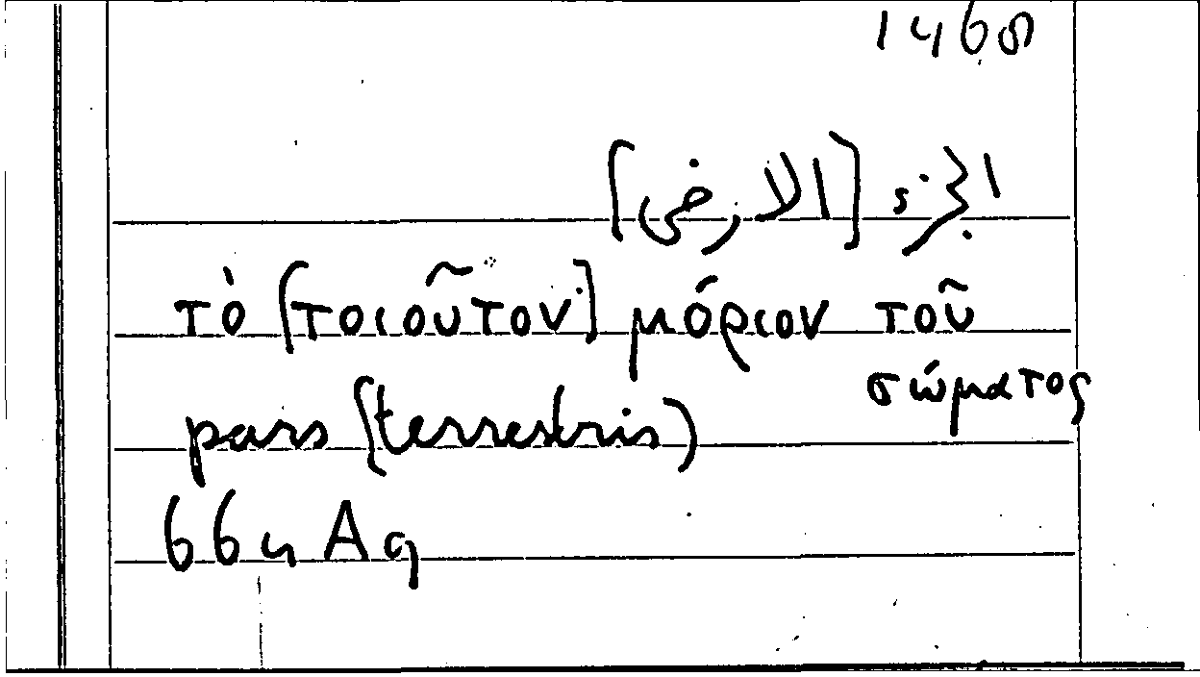 1468
الجزء [الارضى]
τὸ [τοιοῦτον] μόριον τοῦ
σώματος
pars [terrestris]
664 A9